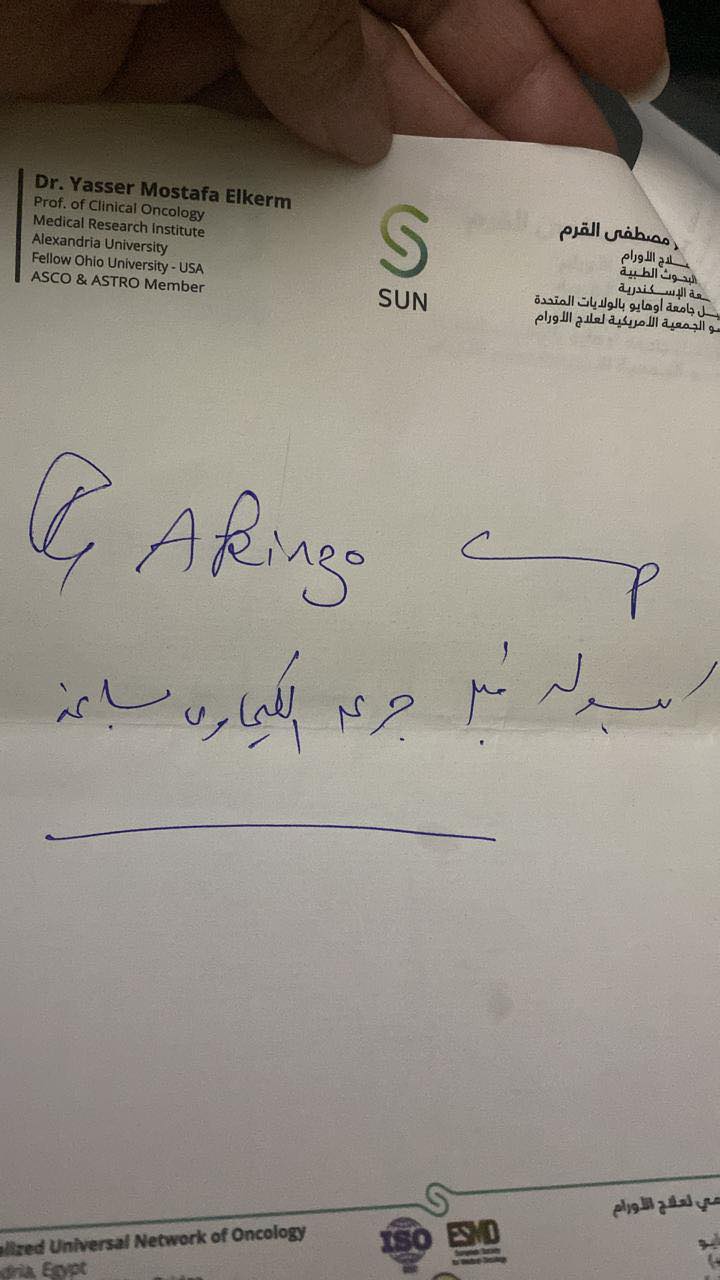 Dr. Yasser Mostafa Elkerm
Prof. of Clinical Oncology
Medical Research Institute
Alexandria University
Fellow Ohio University - USA
ASCO & ASTRO Member
SUN
مصطفى القرم
ـلاج الأورام
البحوث الطبية
ـعة الإسكندرية
ـل جامعة أوهايو بالولايات المتحدة
ـو الجمعية الأمريكية لعلاج الأورام
Akingo
كبسوله قبل جرعه الكيماوى ساعة
ـي لعلاج الأورام
alized Universal Network of Oncology
dria, Egypt
ISO
ESMO